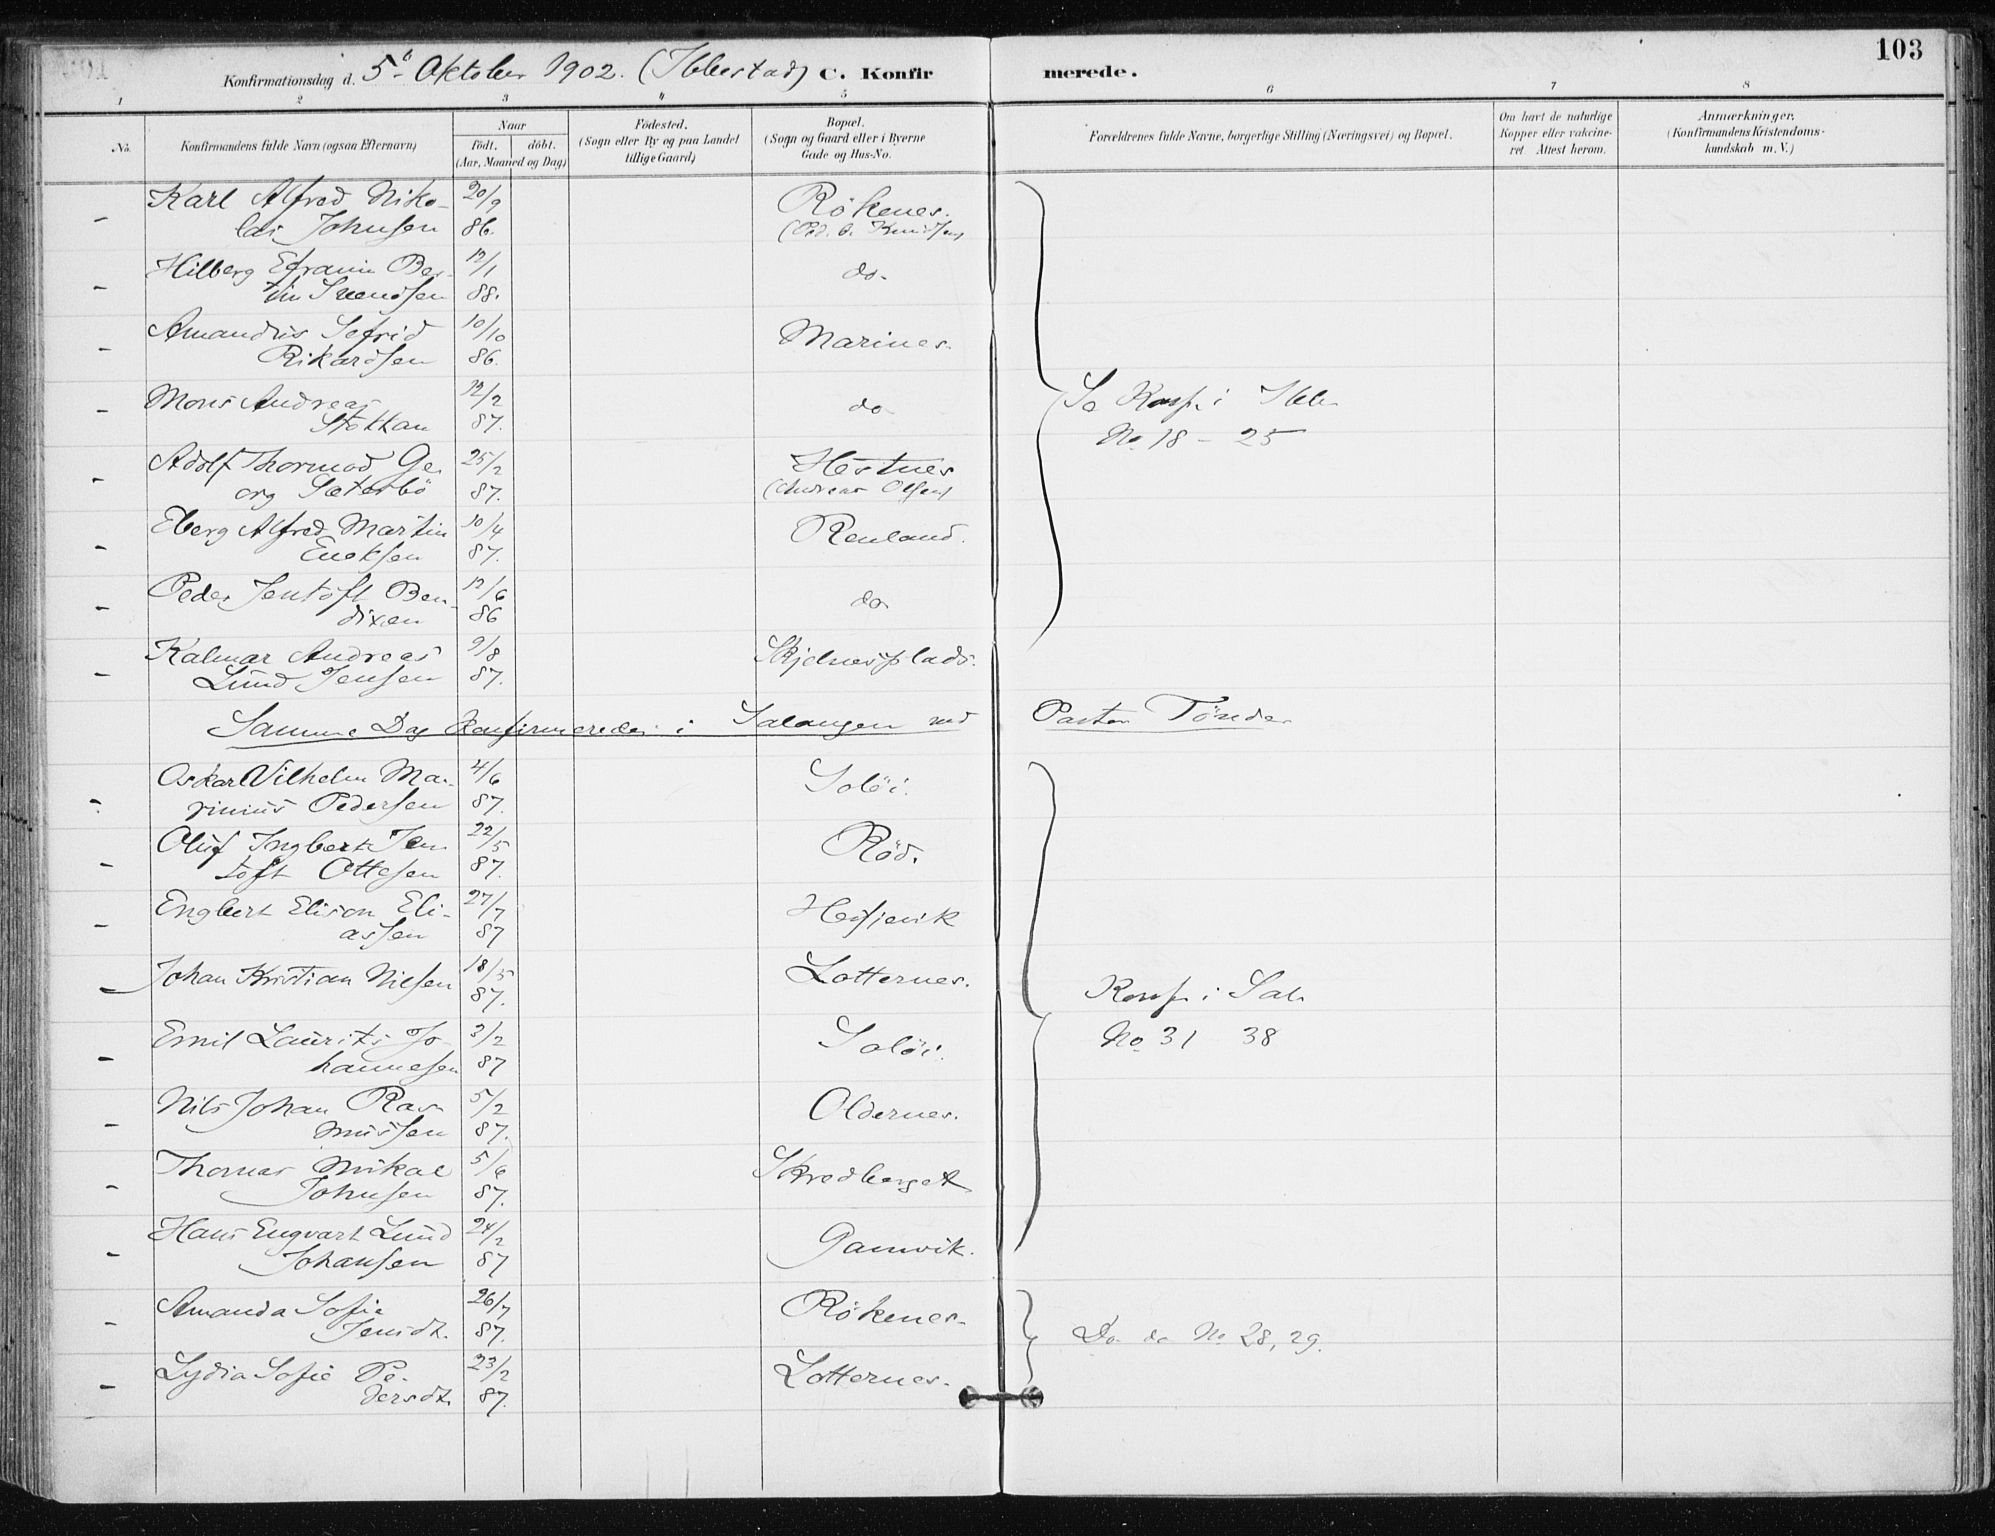 103
Konfirmationsdag d. 5t Oktober 1902. (Ibbestad) C. Konfirmerede.
1 2 3 4 5 6 7 8
No. Konfirmandens fulde Navn (ogsaa Efternavn) Naar født. døbt. (Aar, Maaned og Dag) Fødested. (Sogn eller By og paa Landet tillige Gaard) Bopæl. (Sogn og Gaard eller i Byerne Gade og Hus-No. Forældrenes fulde Navne, borgerlige Stilling (Næringsvei) og Bopæl. Om havt de naturlige Kopper eller vakcineret. Attest herom. Anmærkninger. (Konfirmandens Kristendomskundskab m. V.)
- Karl Alfred Niko- 20/9 Rökenes.
lai Johnsen 86. (Knudsen)
- Hilberg Efraim Ber- 12/1 do-
tin Svendsen 88.
- Amandus Sefrid 10/10 Marines.
Rikardsen 86.
- Mons Andreas 12/2 do
Stokkan 87.
Se Konf. i Ibb.
No 18 - 25
- Adolf Thormod Ge- 25/2 Hestnes
org Sæterbö 87. (Andreas Olsen)
- Eberg Alfred Martin 10/4 Renland.
Enoksen 87.
- Peder Jentoft Ben- 12/6 do
dixen 86
- Kalmar Andreas 9/8 Skjelnesplads.
Lund Jensen 87.
Samme Dag Konfirmerede i Salangen ved Pastor Tönder
- Oskar Vilhelm Ma- 4/6 Solöi.
rinius Pedersen 87.
- Oluf Ingbert Jen 22/5 Röd.
toft Ottesen 87.
- Engbert Elison Eli- 27/7
assen 87
- Johan Kristian Nilsen 18/5 Lotternes.
87.
Konf. i Sal.
No 31 38
- Emil Laurits Jo- 3/2 Solöi.
hannesen 87
- Nils Johan Ras- 5/2 Oldernes.
mussen 87.
- Thomas Mikal 5/6 Skredberget
Johnsen 87.
- Hans Engvart Lund 24/2 Gamvik.
Johansen 87
- Amanda Sofie 26/7 Rökenes.
Jensdt. 87.
Do do No 28, 29.
- Lydia Sofie Pe- 23/2 Lotternes.
dersdt. 87.